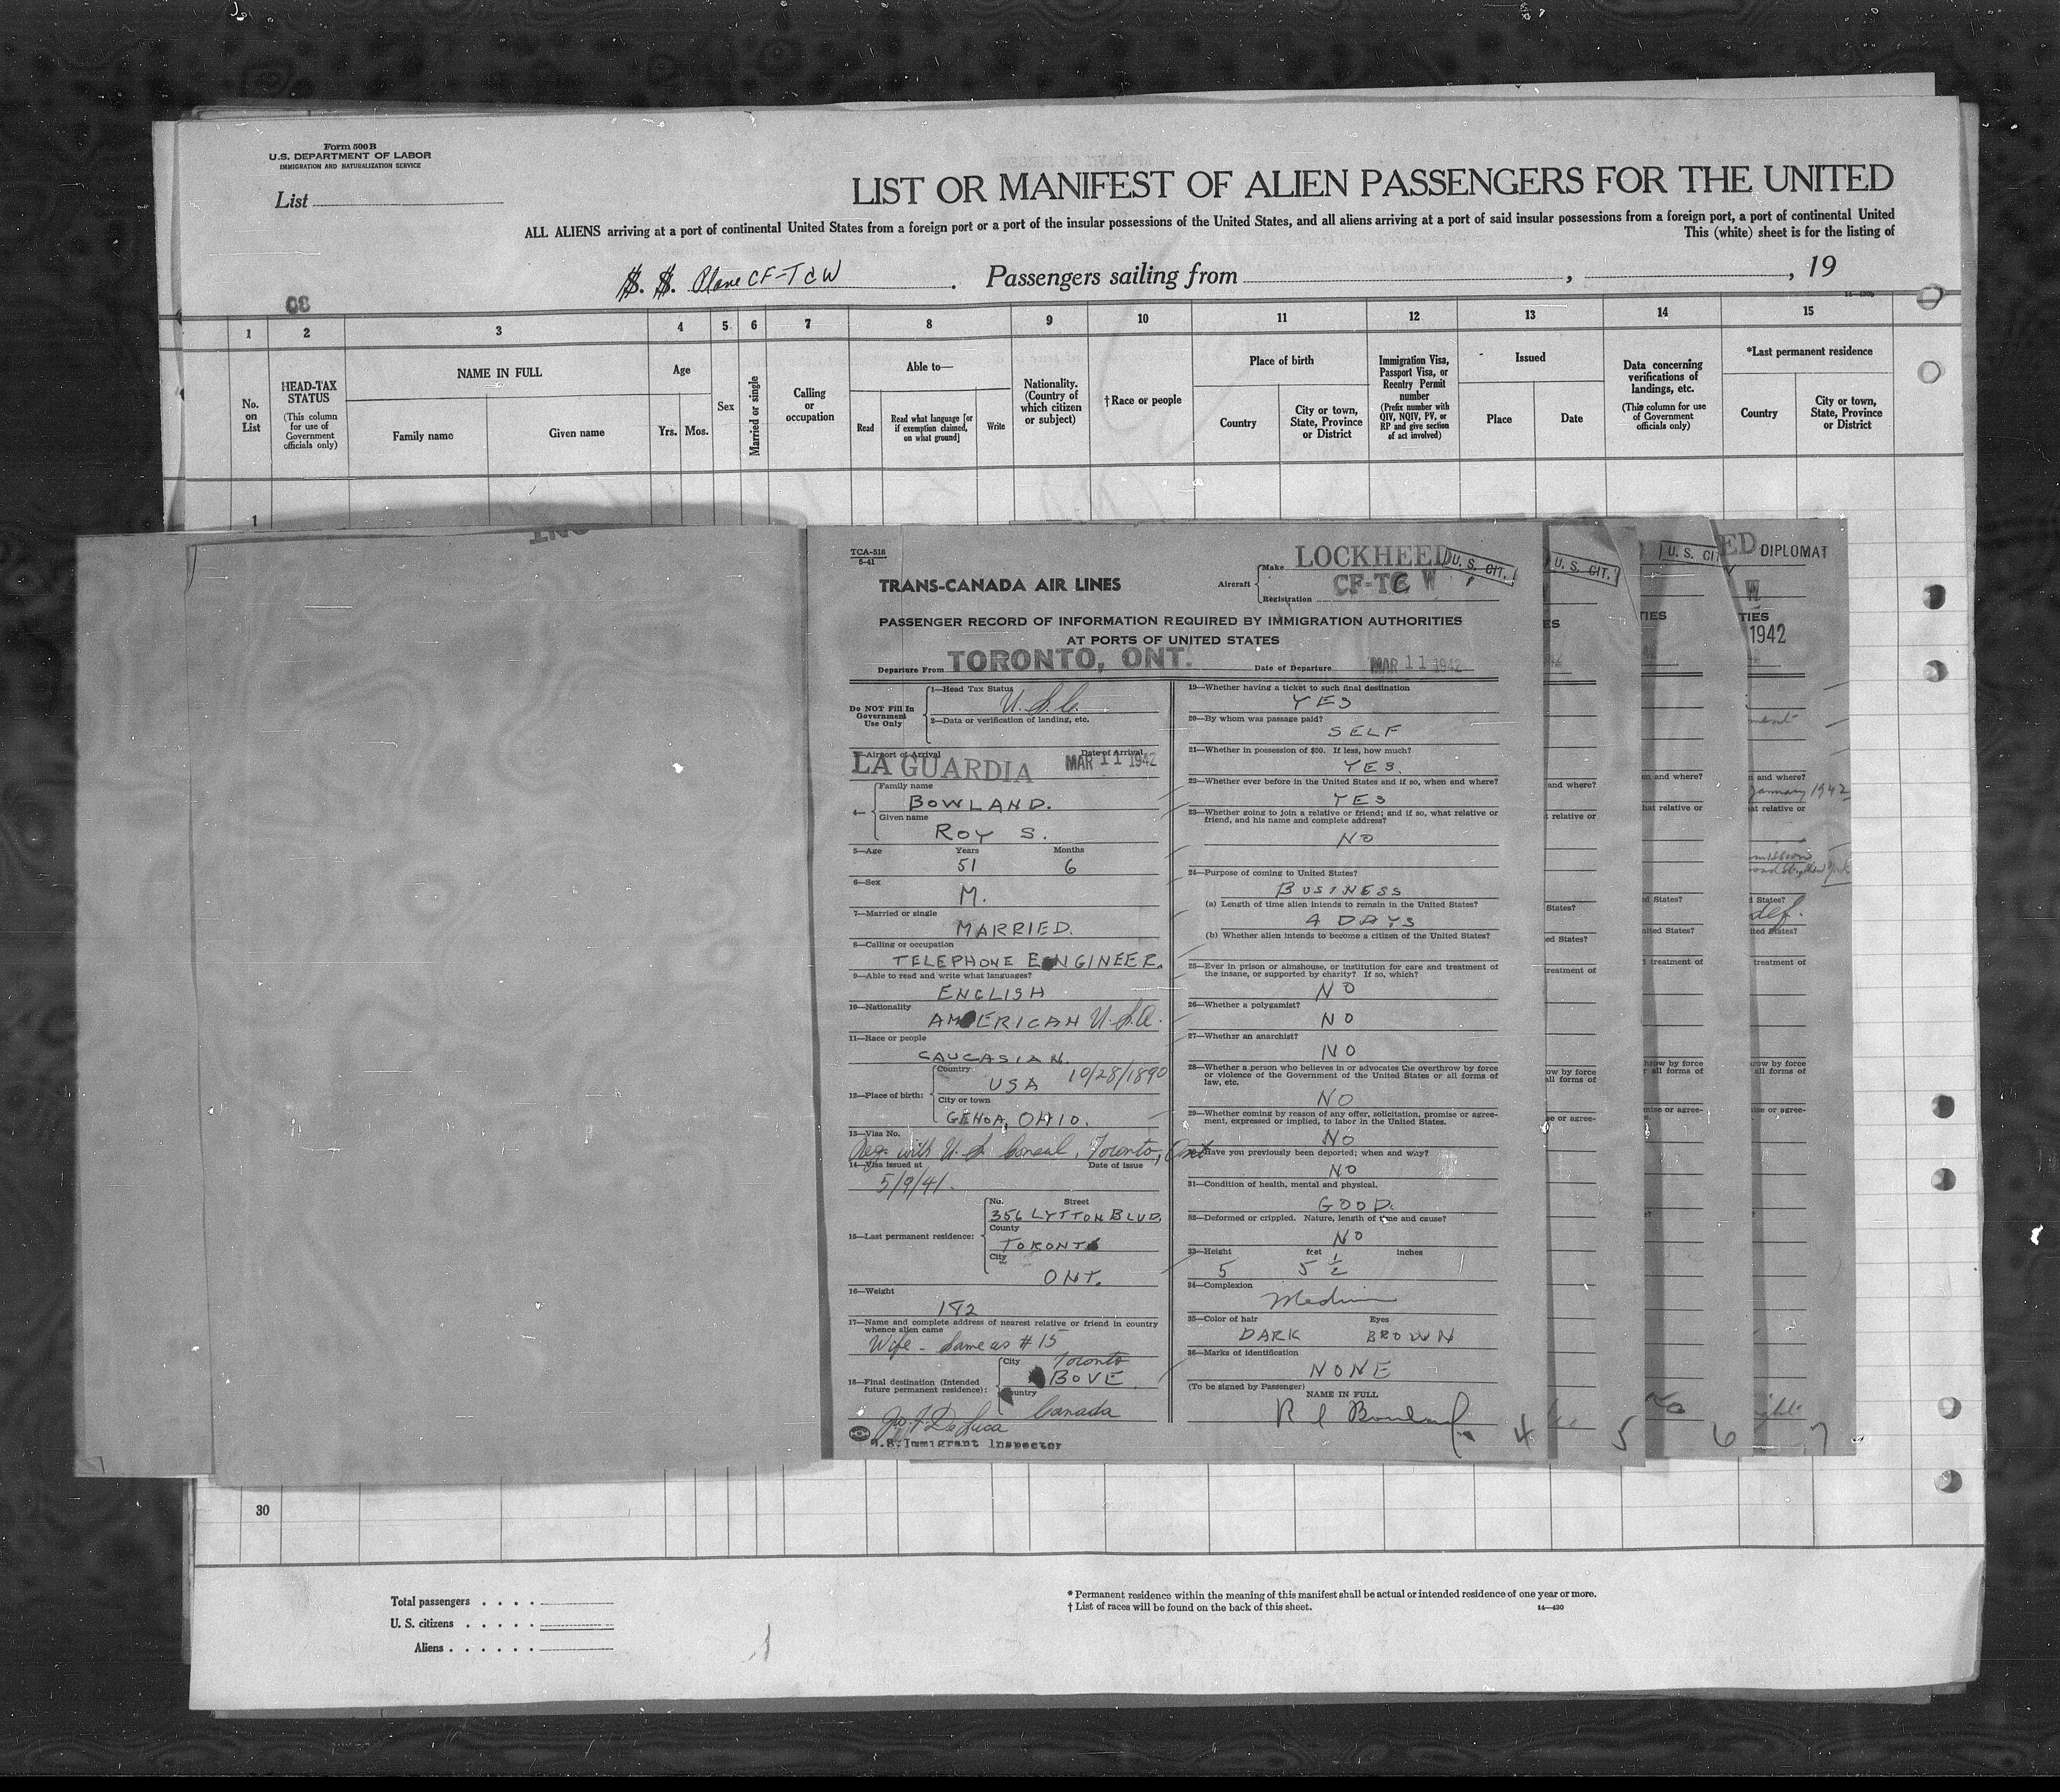 Form 500B
U.S. DEPARTMENT OF LABOR
IMMIGRATION AND NATURALIZATION SERVICE
List
LIST OR MANIFEST OF ALIEN PASSENGERS FOR THE UNITED
ALL ALIENS arriving at a port of continental United States from a foreign port or a port of the insular possessions of the United States, and all aliens arriving at a port of said insular possessions from a foreign port, a port of continental United
This (white) sheet is for the listing of
S. S. Plane CF-TCW. Passengers sailing from , , 19
30
1 2 3 4 5 6 7 8 9 10 11 12 13 14 15
No. on List
HEAD-TAX STATUS
(This column for use of Government officials only)
NAME IN FULL
Family name
Given name
Age
Yrs. Mos.
Sex
Married or single
Calling or occupation
Able to—
Read
Read what language [or if exemption claimed, on what ground]
Write
Nationality. (Country of which citizen or subject)
†Race or people
Place of birth
Country
City or town, State, Province or District
Immigration Visa, Passport Visa, or Reentry Permit number
(Prefix number with QIV, NQIV, PV, or RP and give section of act involved)
Issued
Place
Date
Data concerning verifications of landings, etc.
(This column for use of Government officials only)
*Last permanent residence
Country
City or town, State, Province or District
1
ONT
TCA-518
5-41
TRANS-CANADA AIR LINES
Aircraft
Make LOCKHEED
Registration CF-TCW
U. S. CIT.
PASSENGER RECORD OF INFORMATION REQUIRED BY IMMIGRATION AUTHORITIES
AT PORTS OF UNITED STATES
Departure From TORONTO, ONT. Date of Departure MAR 11 1942
Do NOT Fill In Government Use Only
1—Head Tax Status U.S.C.
2—Data or verification of landing, etc.
3—Airport of Arrival Date of Arrival
LA GUARDIA MAR 11 1942
4—
Family name
BOWLAND.
Given name
ROY S.
5—Age Years Months
51 6
6—Sex
M.
7—Married or single
MARRIED.
8—Calling or occupation
TELEPHONE ENGINEER.
9—Able to read and write what languages?
ENGLISH
10—Nationality
AMERICAN U.S.A.
11—Race or people
CAUCASIAN.
12—Place of birth:
Country
USA 10/28/1890
City or town
GENOA, OHIO.
13—Visa No.
Reg. with U.S. Consul, Toronto, Ont
14—Visa issued at Date of issue
5/9/41.
15—Last permanent residence:
No. Street
356 LYTTON BLVD.
County
TORONTO
City
ONT.
16—Weight
182
17—Name and complete address of nearest relative or friend in country whence alien came
Wife - Same as #15
18—Final destination (Intended future permanent residence):
City Toronto
BOVE.
Country
Canada
Jos. F. DeLuca
U.S. Immigrant Inspector
19—Whether having a ticket to such final destination
YES
20—By whom was passage paid?
SELF
21—Whether in possession of $50. If less, how much?
YES.
22—Whether ever before in the United States and if so, when and where?
YES
23—Whether going to join a relative or friend; and if so, what relative or friend, and his name and complete address?
NO
24—Purpose of coming to United States?
BUSINESS
(a) Length of time alien intends to remain in the United States?
4 DAYS
(b) Whether alien intends to become a citizen of the United States?
25—Ever in prison or almshouse, or institution for care and treatment of the insane, or supported by charity? If so, which?
NO
26—Whether a polygamist?
NO
27—Whether an anarchist?
NO
28—Whether a person who believes in or advocates the overthrow by force or violence of the Government of the United States or all forms of law, etc.
NO
29—Whether coming by reason of any offer, solicitation, promise or agreement, expressed or implied, to labor in the United States.
NO
Have you previously been deported; when and why?
NO
31—Condition of health, mental and physical.
GOOD.
32—Deformed or crippled. Nature, length of time and cause?
NO
33—Height feet inches
5 5 1/2
34—Complexion
Medium
35—Color of hair Eyes
DARK BROWN
36—Marks of identification
NONE
(To be signed by Passenger)
NAME IN FULL
R S Bowland
4 5 6 7
U. S. CIT.
U. S. CIT
ED DIPLOMAT
W
TIES
1942
January 1942
def.
30
Total passengers
U. S. citizens
Aliens
* Permanent residence within the meaning of this manifest shall be actual or intended residence of one year or more.
† List of races will be found on the back of this sheet.
14—430